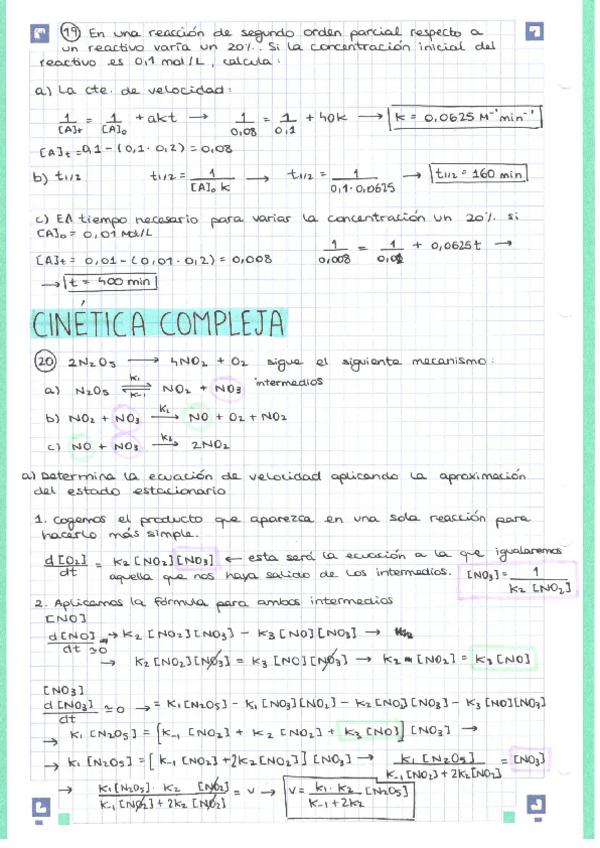 19 En una reacción de segundo orden parcial respecto a
un reactivo varía un 20%. Si la concentración inicial del
reactivo es 0,1 mol/L, calcula:
a) La cte. de velocidad:
1/[A]t = 1/[A]0 + akt → 1/0,08 = 1/0,1 + 40k → k = 0,0625 M⁻¹min⁻¹
[A]t = 0,1 - (0,1 · 0,2) = 0,08
b) t1/2 t1/2 = 1/[A]0 k → t1/2 = 1/0,1·0,0625 → t1/2 = 160 min
c) El tiempo necesario para variar la concentración un 20% si
[A]0 = 0,01 mol/L 1/0,008 = 1/0,01 + 0,0625t →
[A]t = 0,01 - (0,01 · 0,2) = 0,008
→ t = 400 min
CINÉTICA COMPLEJA
20 2N2O5 → 4NO2 + O2 sigue el siguiente mecanismo:
a) N2O5 ⇌ NO2 + NO3 intermedios
K1
K-1
b) NO2 + NO3 →K2 NO + O2 + NO2
c) NO + NO3 →K3 2NO2
a) Determina la ecuación de velocidad aplicando la aproximación
del estado estacionario
1. Cogemos el producto que aparezca en una sola reacción para
hacerlo más simple.
d[O2]/dt = K2 [NO2][NO3] ← esta será la ecuación a la que igualaremos
aquella que nos haya salido de los intermedios. [NO3] = 1/K2 [NO2]
2. Aplicamos la fórmula para ambos intermedios
[NO]
d[NO]/dt ≃0 → K2 [NO2][NO3] - K3 [NO][NO3] →
→ K2 [NO2][NO3] = K3 [NO][NO3] → K2 [NO2] = K3 [NO]
[NO3]
d[NO3]/dt ≃0 → = K1 [N2O5] - K1 [NO3][NO2] - K2 [NO2][NO3] - K3 [NO][NO3]
→ K1 [N2O5] = [K-1 [NO2] + K2 [NO2] + K3 [NO]] [NO3] →
→ K1 [N2O5] = [K-1 [NO2] + 2K2 [NO2]] [NO3] → K1 [N2O5]/K-1 [NO2] + 2K2 [NO2] = [NO3]
→ K1 [N2O5] · K2 [NO2]/K-1 [NO2] + 2K2 [NO2] = v → v = K1 · K2/K-1 + 2K2 [N2O5]